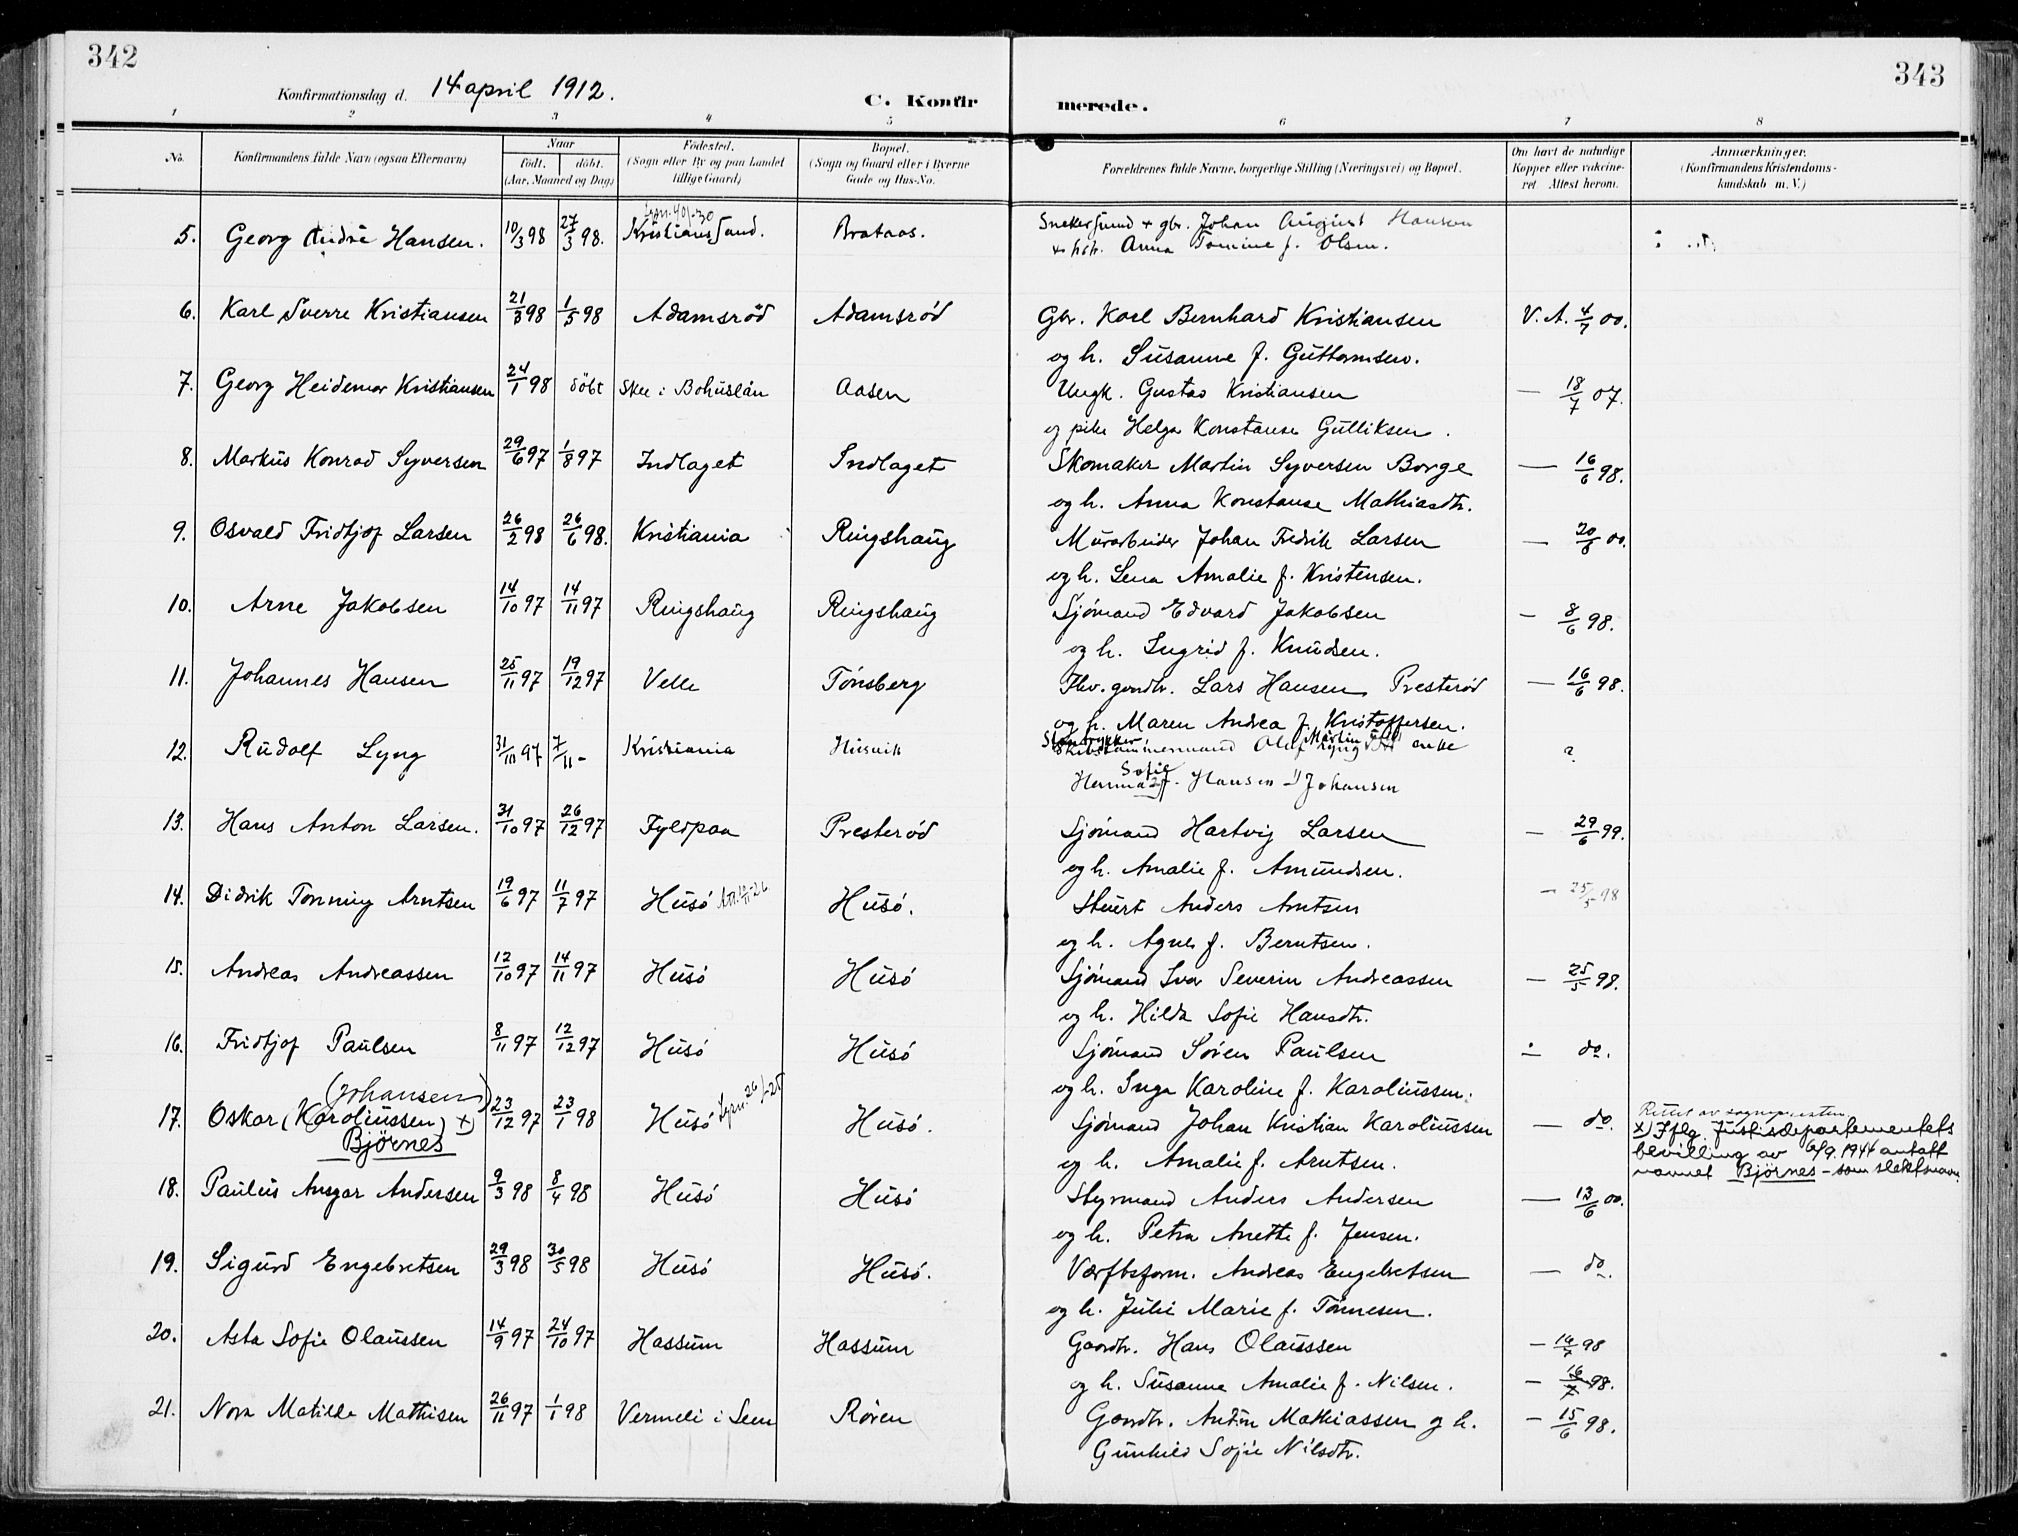 342
343
Konfirmationsdag d. 14 april 1912.
C. Konfirmerede.
1 2 3 4 5 6 7 8
No. Konfirmandens fulde Navn (ogsaa Efternavn)
Naar født. døbt. (Aar, Maaned og Dag)
Fødested. (Sogn eller By og paa Landet tillige Gaard)
Bopæl. (Sogn og Gaard eller i Byerne Gade og Hus-No.
Forældrenes fulde Navne, borgerlige Stilling (Næringsvei) og Bopæl.
Om havt de naturlige Kopper eller vakcineret. Attest herom.
Anmærkninger. (Konfirmandens Kristendomskundskab m. V.)
5. Georg André Hansen. 10/3 98 27/3 98. Kristianssand. Brataas. Johan August Hansen
Anna Tomine f. Olsen.
6. Karl Sverre Kristiansen 21/3 98 1/5 98 Adamsrød Adamsrød Gbr. Karl Bernhard Kristiansen V. A. 4/7 00.
og h. Susanne f. Guttormsen.
7. Georg Heidemar Kristiansen 24/1 98 døbt Skee i Bohuslän Aasen Ungk. Gustav Kristiansen — 18/7 07.
og pike Helga Konstanse Gulliksen.
8. Markus Konrad Syversen 29/6 97 1/8 97 Indlaget Indlaget Skomaker Martin Syversen Borge — 16/6 98.
og h. Anna Konstanse Mathiasdtr.
9. Osvald Fridtjof Larsen 26/2 98 26/6 98. Kristiania Ringshaug Murarbeider Johan Fredrik Larsen — 20/8 00.
og h. Lena Amalie f. Kristensen.
10. Arne Jakobsen 14/10 97 14/11 97 Ringshaug Ringshaug Sjømand Edvard Jakobsen — 8/6 98.
og h. Ingrid f. Knudsen.
11. Johannes Hansen 25/11 97 19/12 97 Velle Tønsberg Lars Hansen Presterød — 16/6 98.
og h. Maren Andrea f. Kristoffersen.
12. Rudolf Lyng 31/10 97 7/11 - Kristiania Husvik Olaf Martin Lyng enke ?
Sofie f. Hansen Johansen
13. Hans Anton Larsen. 31/10 97 26/12 97 Fyldpaa Presterød Sjømand Hartvig Larsen — 29/6 99.
og h. Amalie f. Amundsen.
14. Didrik Tonning Arntsen 19/6 97 11/7 97 Husø Husø. Stuert Anders Arntsen — 25/5 98
og h. Agnes f. Berntsen.
15. Andreas Andreassen 12/10 97 14/11 97 Husø Husø Sjømand Ivar Severin Andreassen — 25/5 98.
og h. Hilda Sofie Hansdtr.
16. Fridtjof Paulsen 8/11 97 12/12 97 Husø Husø Sjømand Søren Paulsen — do.
og h. Inga Karoline f. Karoliussen.
(Johansen)
17. Oskar (Karoliussen) x) 23/12 97 23/1 98 Husø Husø. Sjømand Johan Kristian Karoliussen — do.
Bjørnes
og h. Amalie f. Arntsen.
Rettet av sognepresten
x) Iflg. Justisdepartementets
bevilling av 6/9. 1944 antatt
navnet Bjørnes - som slektsnavn.
18. Paulus Ansgar Andersen 9/3 98 8/4 98 Husø Husø Styrmand Anders Andersen — 13/6 00.
og h. Petra Anette f. Jensen.
19. Sigurd Engebretsen 29/3 98 30/5 98 Husø Husø. Værftsform. Andreas Engebretsen — do.
og h. Julie Marie f. Tønnesen.
20. Asta Sofie Olaussen 14/9 97 24/10 97 Hassum Hassum Gaardbr. Hans Olaussen — 16/7 98
og h. Susanne Amalie f. Nilsen. — 16/7 98.
21. Nora Matilde Mathisen 26/11 97 1/1 98 Vermeli i Sem Røren Gaardbr. Anton Mathiassen og h. — 15/6 98.
Gunhild Sofie Nilsdtr.